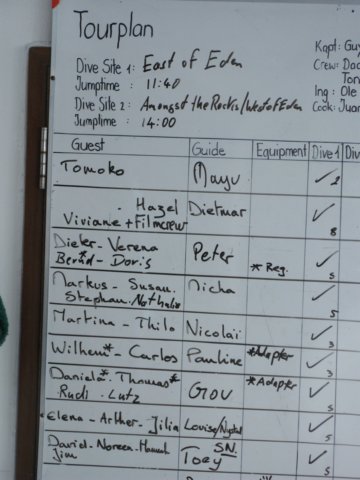 Tourplan
Kapt: Guy
Dive Site 1: East of Eden
Crew:
Jumptime : 11:40
Ing : Ole
Dive Site 2: Amongst the Rocks/West of Eden
Cook: Juan
Jumptime : 14:00
Guest Guide Equipment Dive 1 Div
Tomoko Mayu ✓ 2
Hazel
Viviane + Filmcrew Dietmar ✓ 8
Dieter - Verena
Bernd - Doris Peter * Reg. ✓ 5
Markus - Susan.
Stephan. Nathalie Micha ✓ 5
Martina - Thilo Nicolaï ✓ 3
Wilhem* - Carlos Pauline *Adapter ✓ 3
Daniela* - Thomas*
Rudi - Lutz Gov *Adapter ✓ 5
Elena - Arther - Jilia Louise/Nystal ✓ 5
Daniel - Noreen - Hannah
Jim Toey SN. ✓ 5